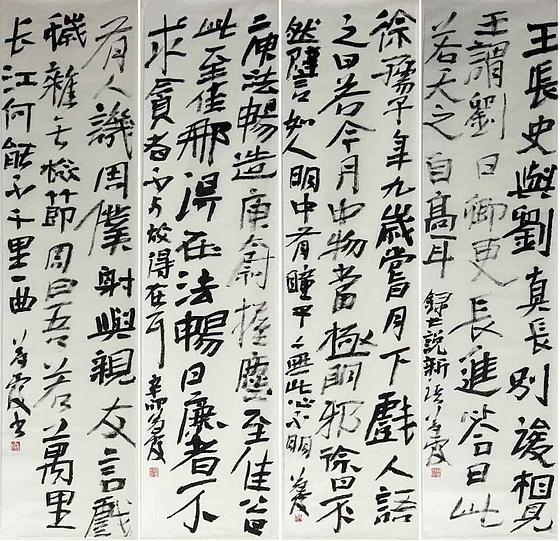 王長史與劉真長別後相見
王謂劉曰卿更長進答曰此
若天之自高耳 錄世說新語
徐孺子年九歲嘗月下戲人語
之曰若令月中物當極明邪徐曰不
然譬如人眼中有瞳子無此必不明
法暢造庾尉握麈至佳
此至佳那得在法暢曰廉者不
求貪者不與故得在耳 辛卯
有人譏周僕射與親友言戲
穢雜無檢節周曰吾若萬里
長江何能不千里一曲